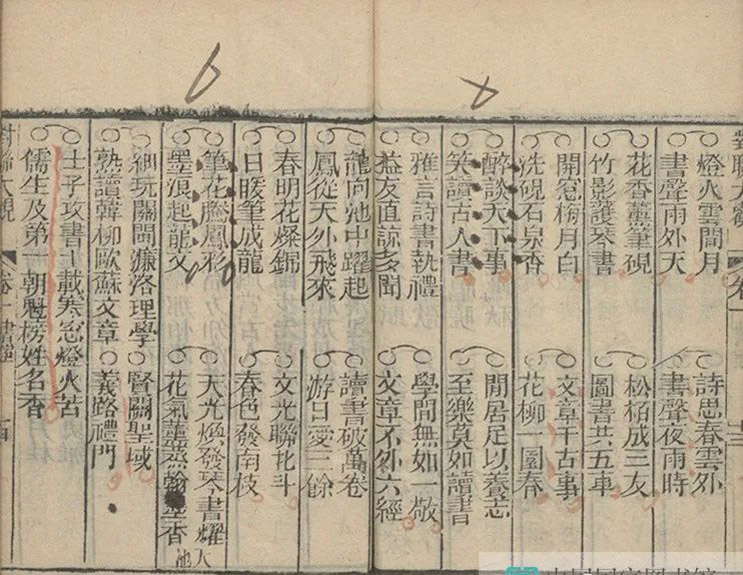 對聯大觀 卷一
燈火雲間月 詩思春雲外
書聲雨外天 書聲夜雨時
花香薰筆硯 松栢成三友
竹影護琴書 圖書共五車
開窓梅月白 文章千古事
洗硯石泉香 花柳一園春
醉談天下事 閒居足以養志
笑讀古人書 至樂莫如讀書
雅言詩書執禮 學問無如一敬
益友直諒多聞 文章不外六經
龍向池中躍起 讀書破萬卷
鳳從天外飛來 游日愛三餘
春明花燦錦 文光聯北斗
日暖筆成龍 春色發南枝
筆花騰鳳彩 天光燄發琴書耀人
墨浪起龍文 花氣薰蒸翰墨香池
細玩關閩濂洛理學 賢關聖域
熟讀韓柳歐蘇文章 義路禮門
士子攻書十載寒窓燈火苦
儒生及第一朝魁榜姓名香
對聯大觀 卷一